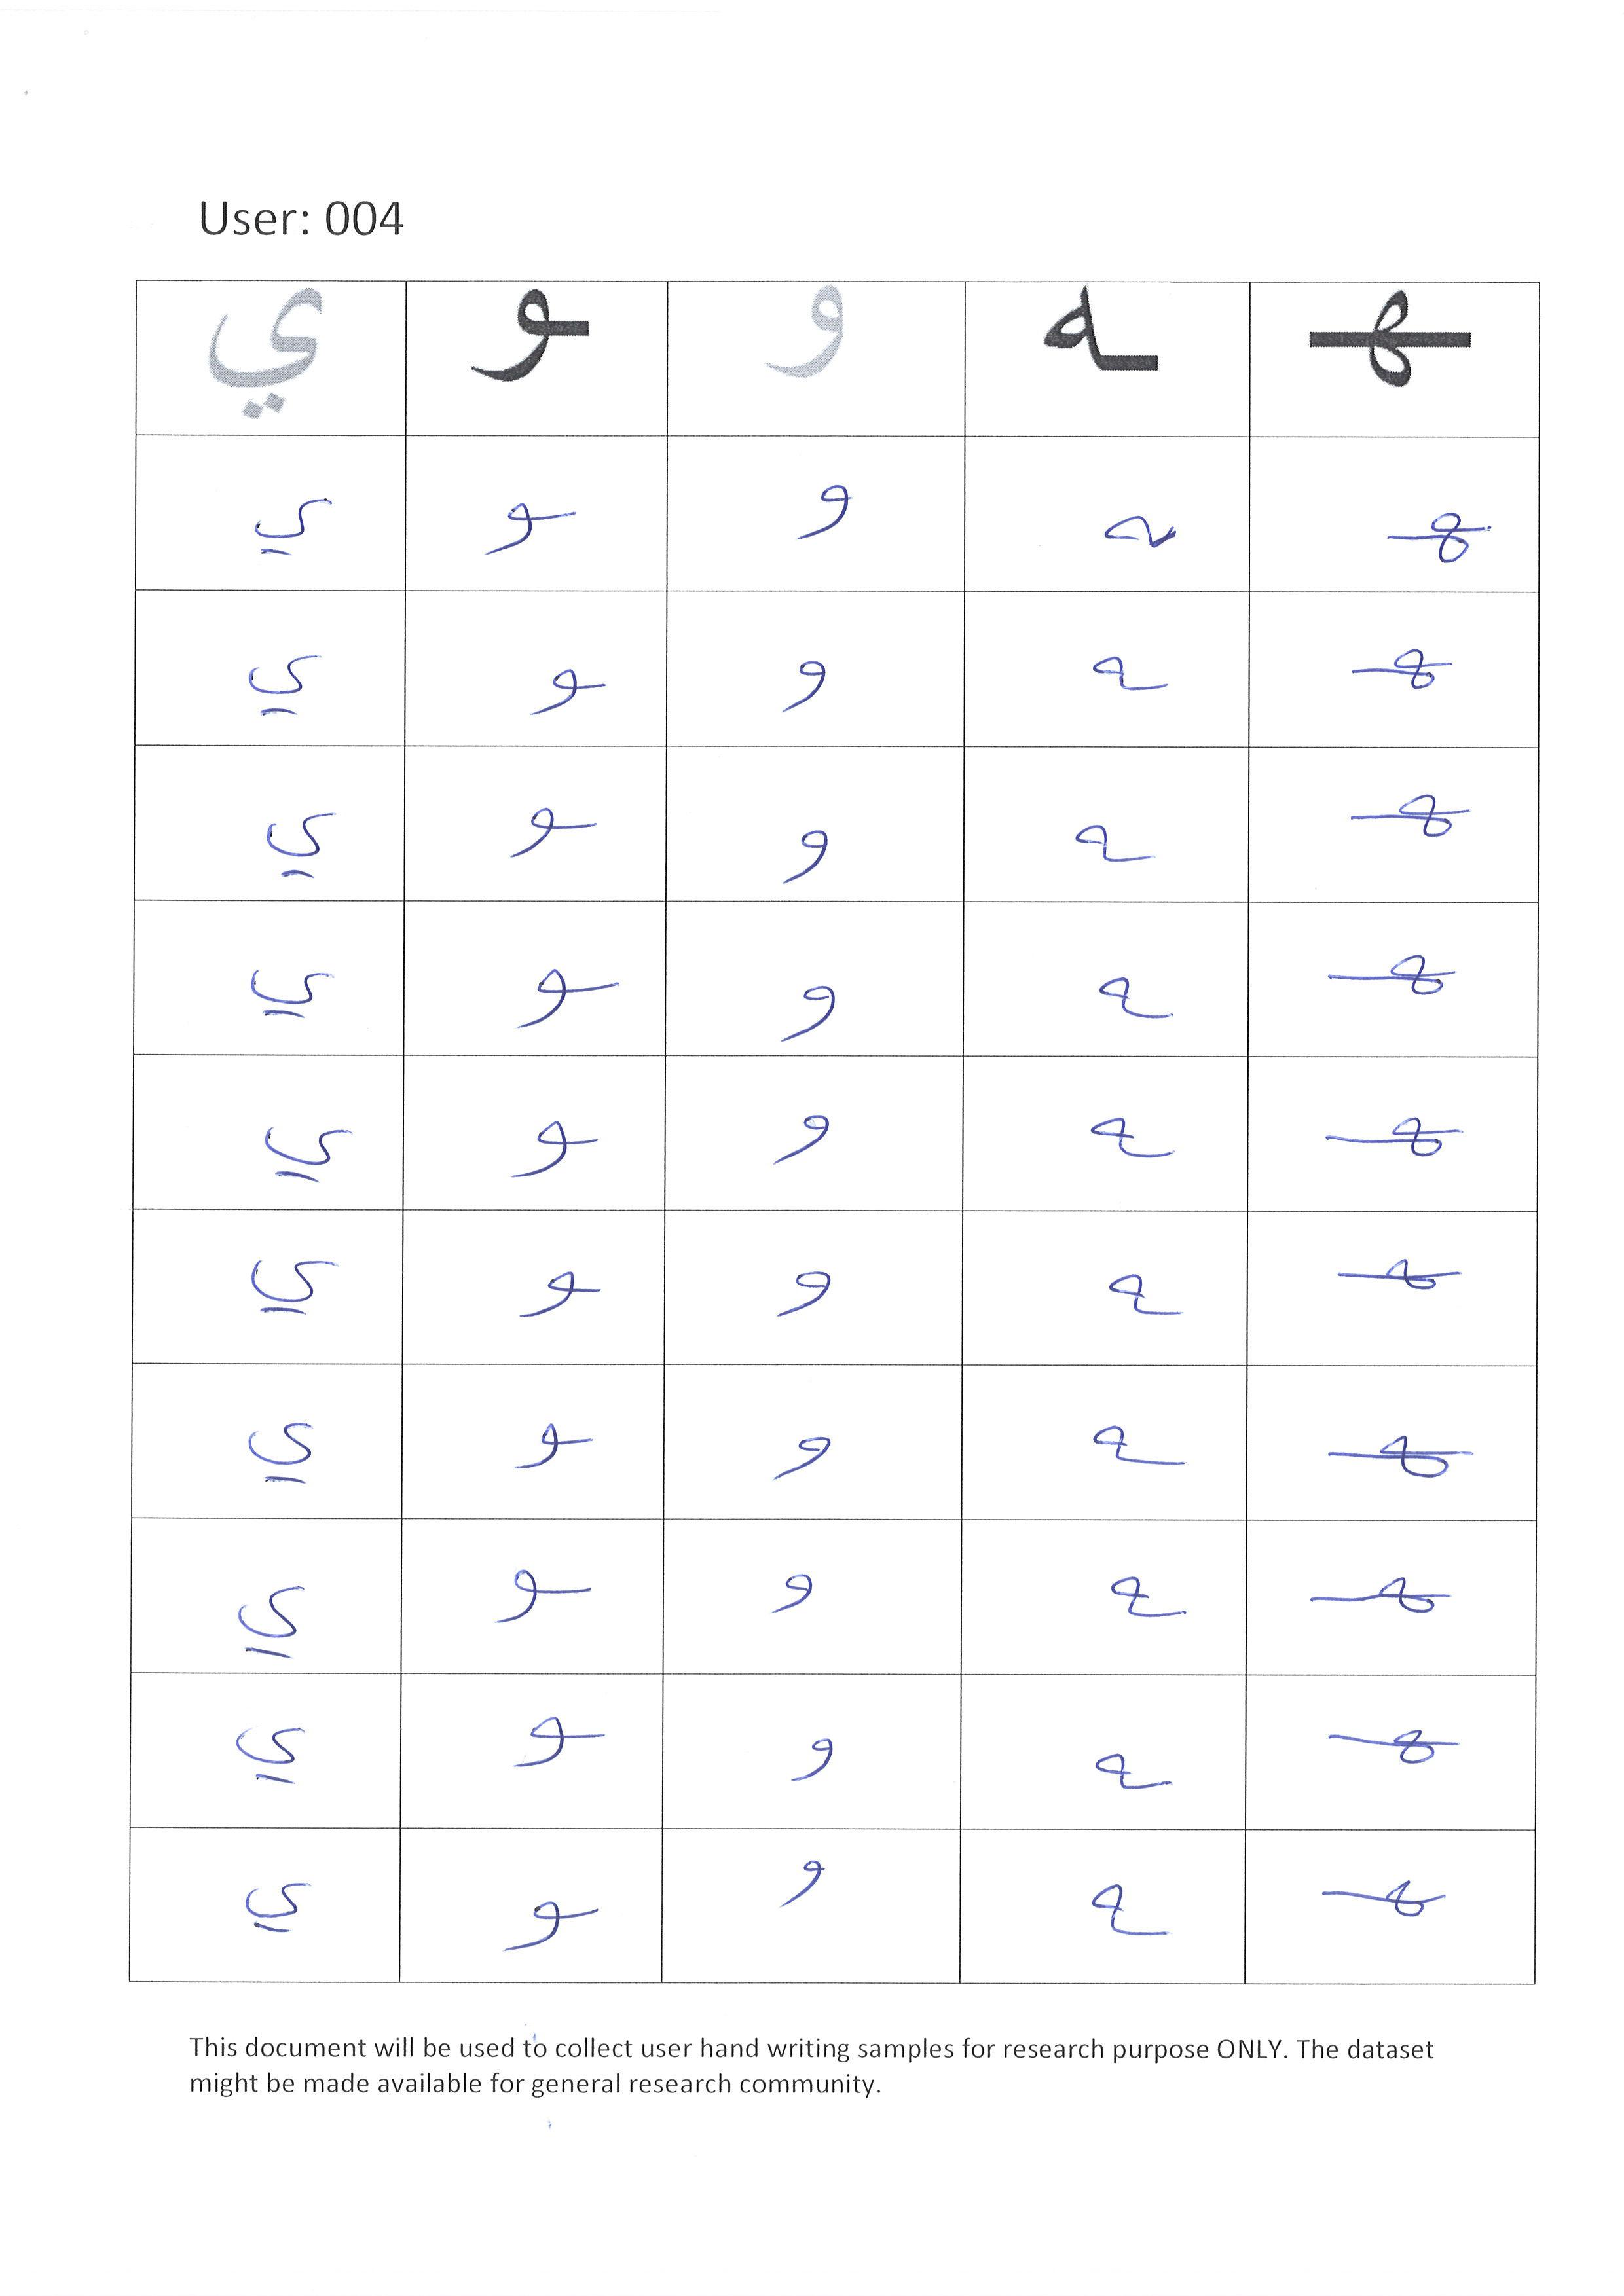 User: 004
ـهـ ـه و ـو ي
ـهـ ـه و ـو ي
ـهـ ـه و ـو ي
ـهـ ـه و ـو ي
ـهـ ـه و ـو ي
ـهـ ـه و ـو ي
ـهـ ـه و ـو ي
ـهـ ـه و ـو ي
ـهـ ـه و ـو ي
ـهـ ـه و ـو ي
ـهـ ـه و ـو ي
This document will be used to collect user hand writing samples for research purpose ONLY. The dataset
might be made available for general research community.